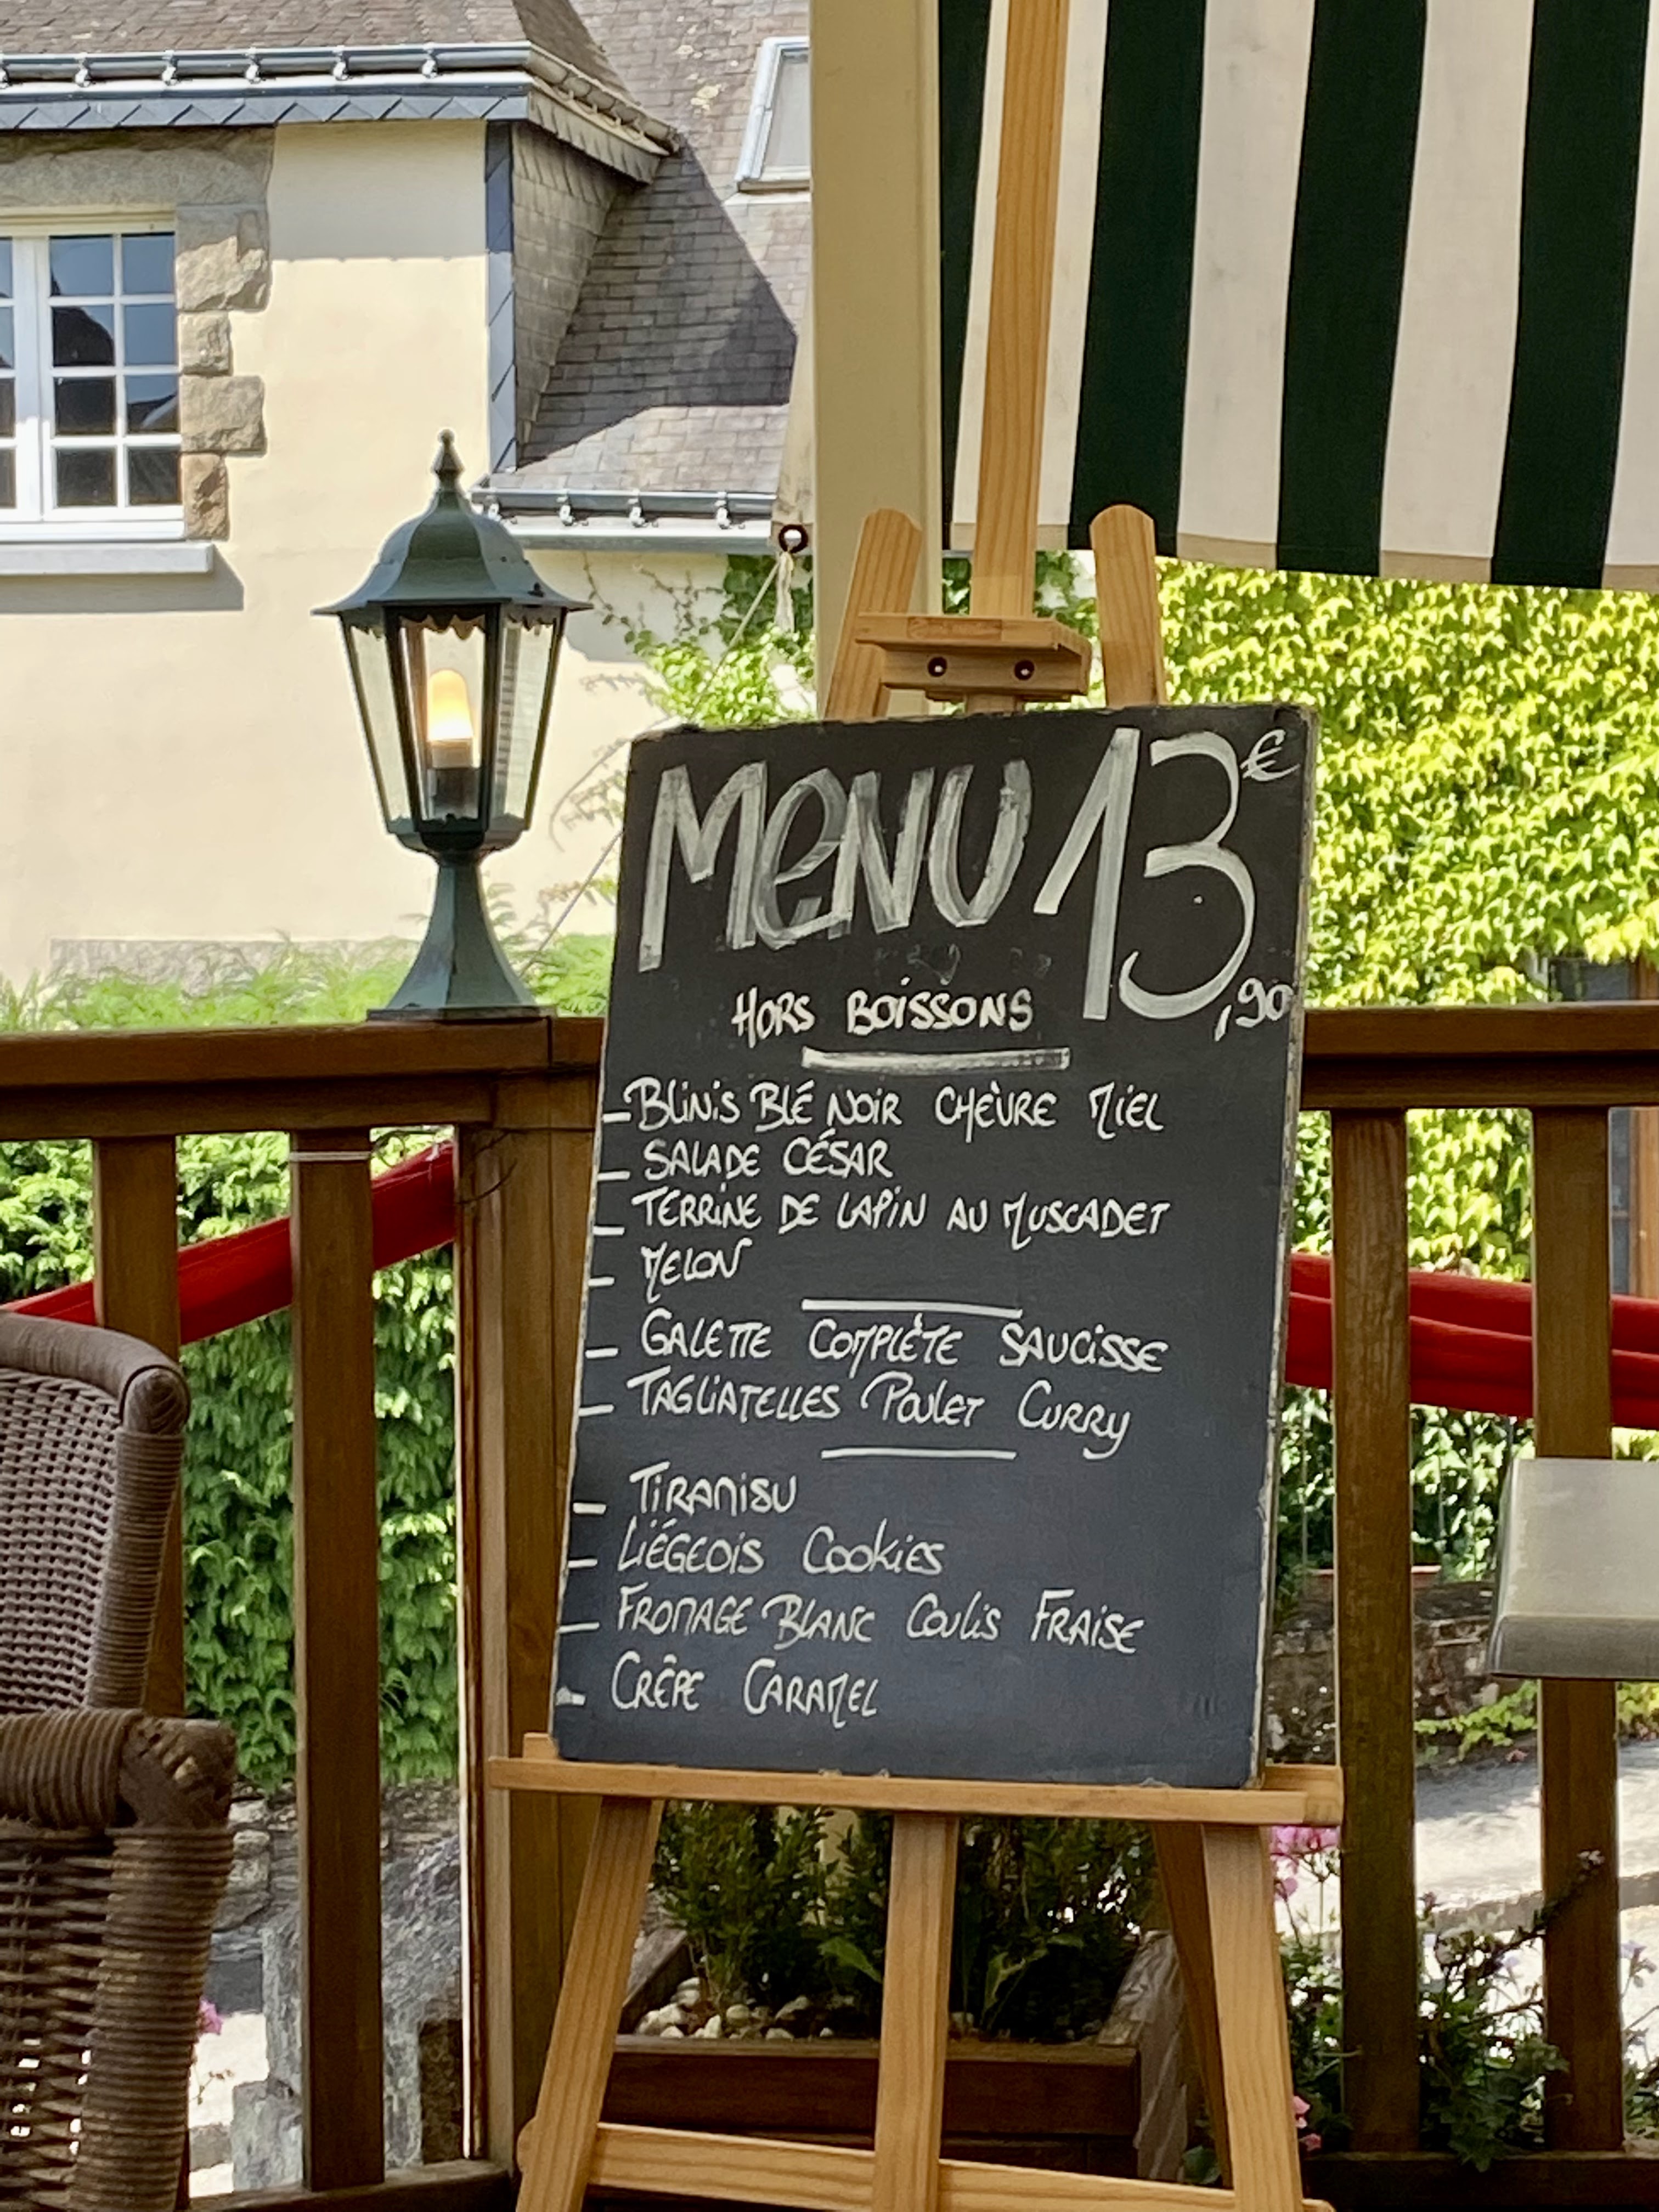 MENU 13€,90
HORS BOISSONS
- BLINIS BLÉ NOIR CHÈVRE MIEL
- SALADE CÉSAR
- TERRINE DE LAPIN AU MUSCADET
- MELON
- GALETTE COMPLÈTE SAUCISSE
- TAGLIATELLES POULET CURRY
- TIRAMISU
- LIÉGEOIS COOKIES
- FROMAGE BLANC COULIS FRAISE
- CRÊPE CARAMEL